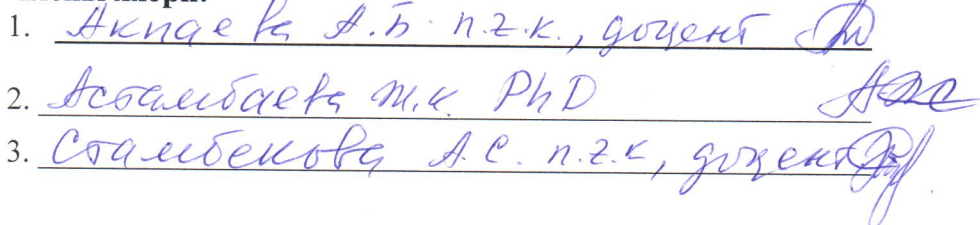 1. Акпаева А.Б. п.ғ.к., доцент
2. Астамбаева Ж.К. PhD
3. Стамбекова А.С. п.ғ.к, доцент